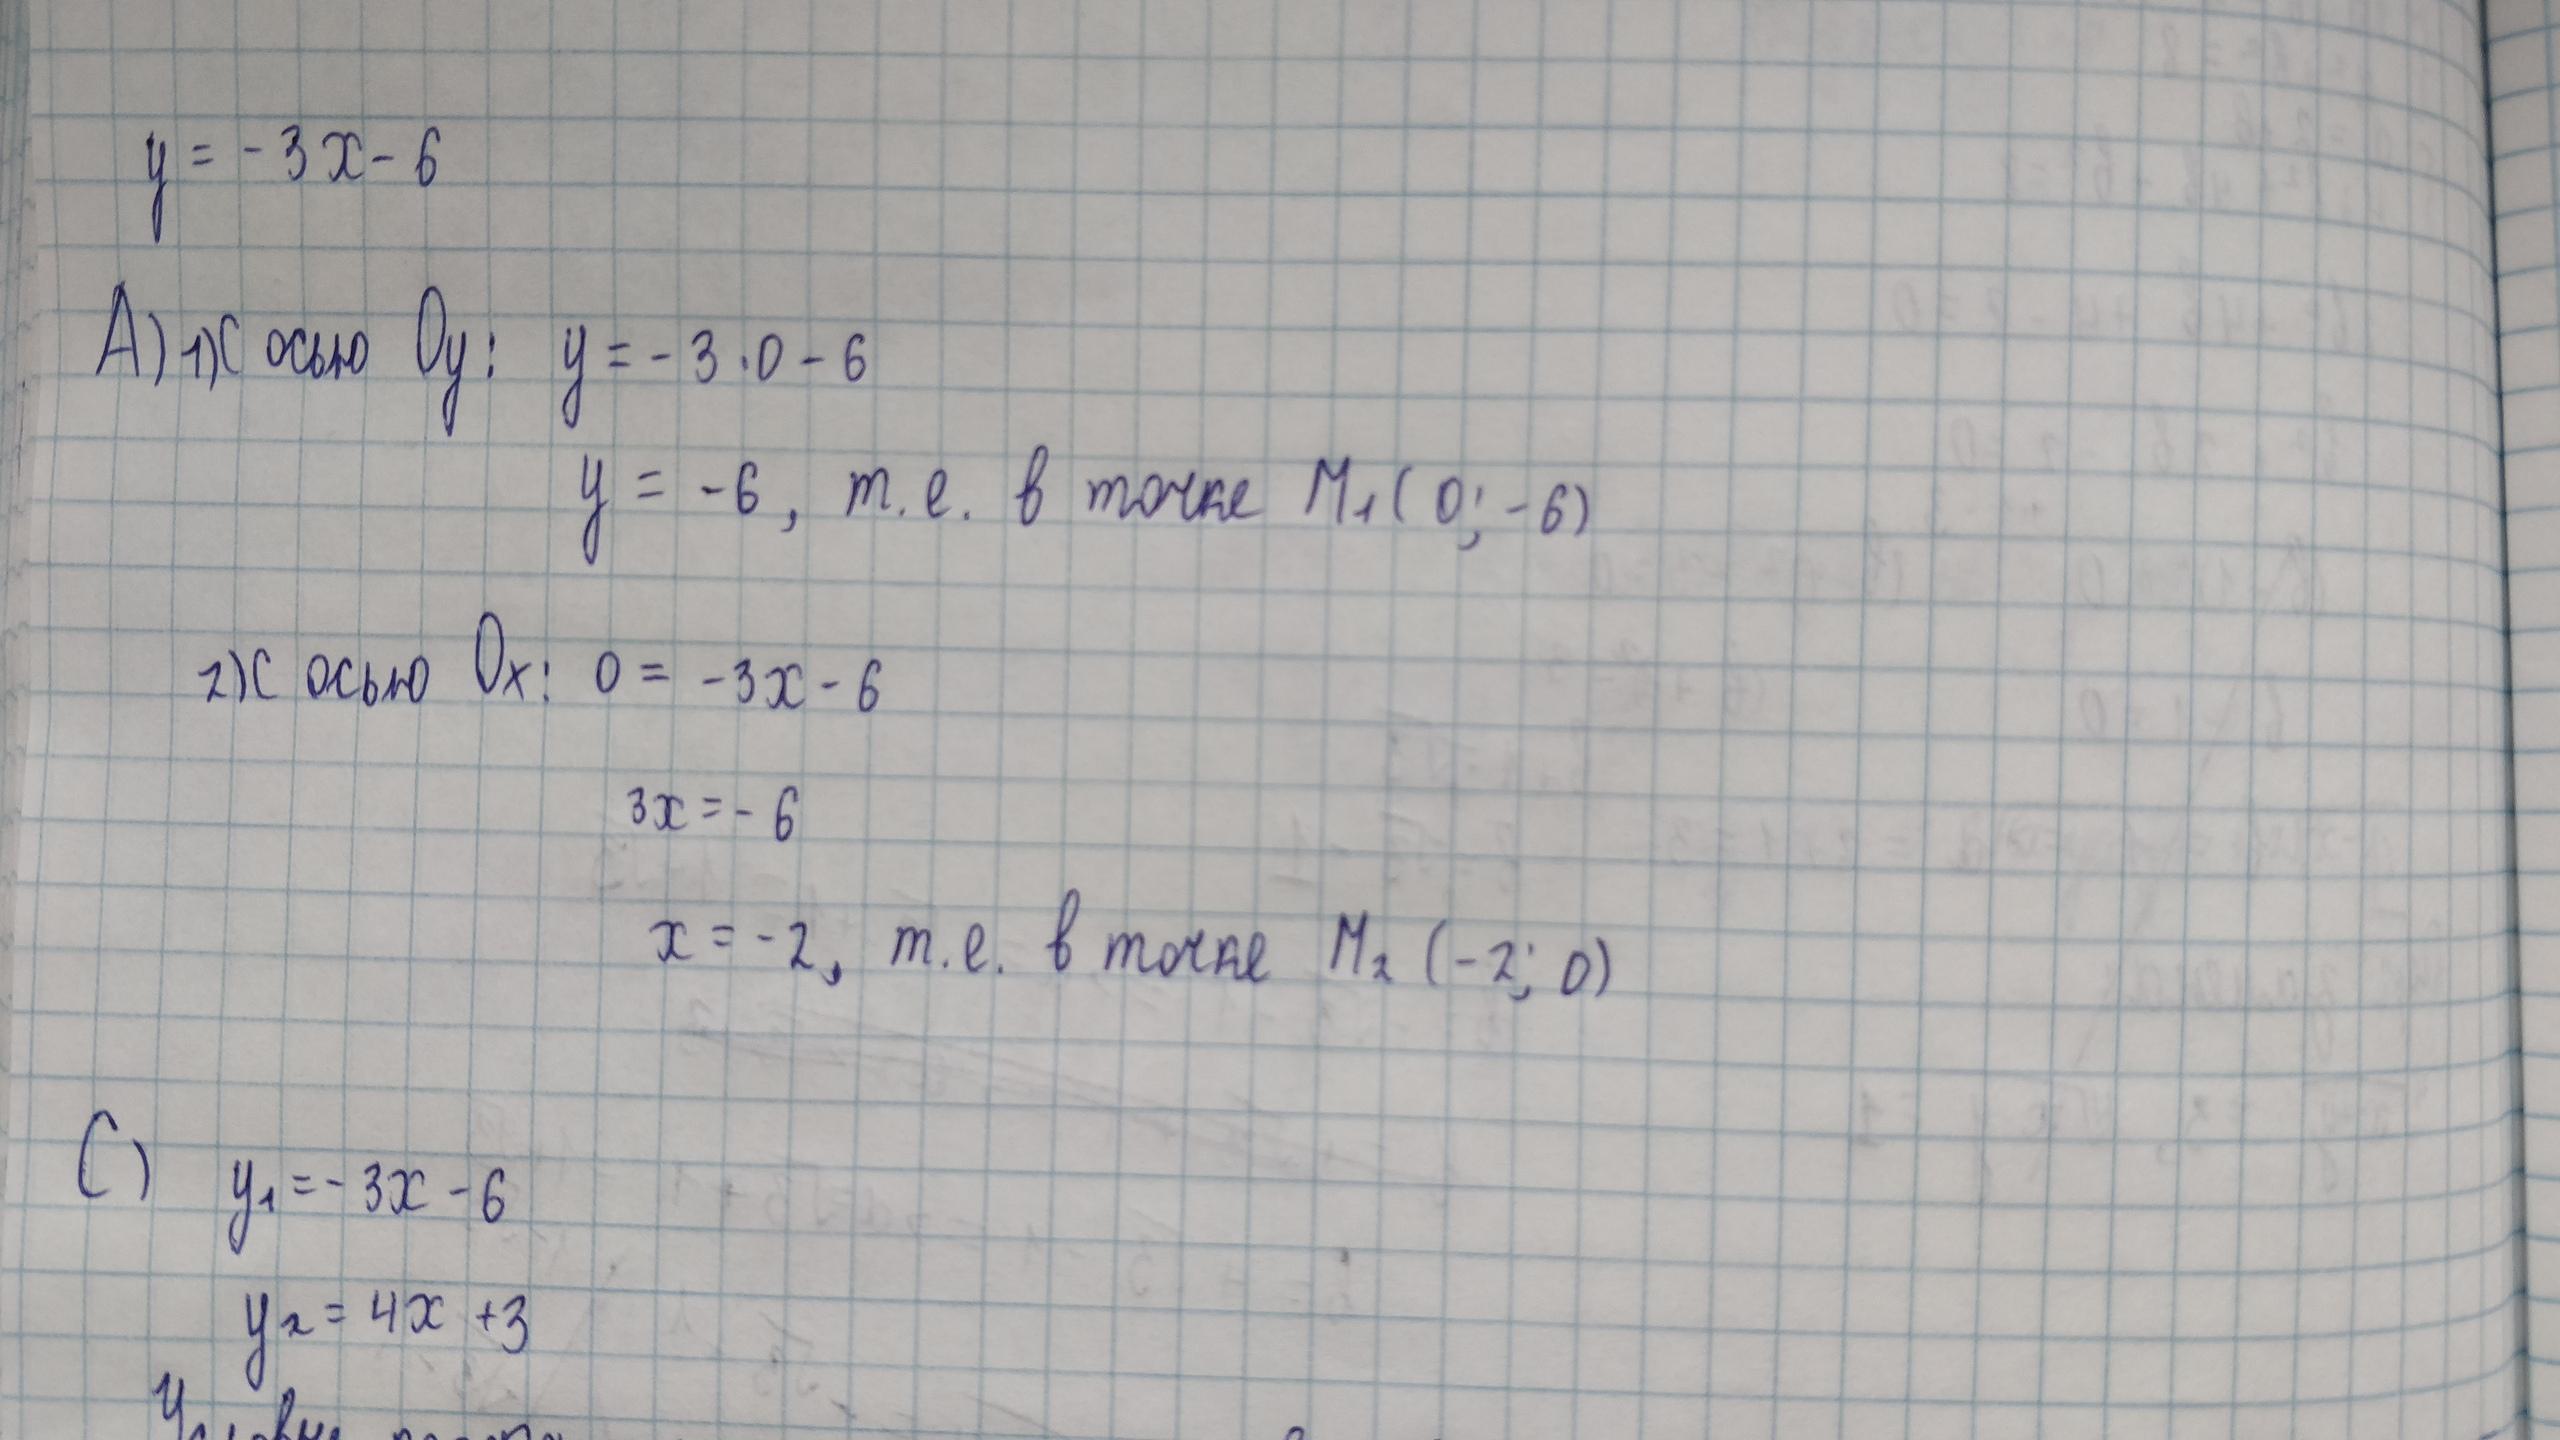 y = -3x - 6
А) 1) С осью Оу: y = -3 · 0 - 6
y = -6, т.е. в точке М₁ (0; -6)
2) С осью Ох: 0 = -3x - 6
3x = -6
x = -2, т.е. в точке М₂ (-2; 0)
С) y₁ = -3x - 6
y₂ = 4x + 3